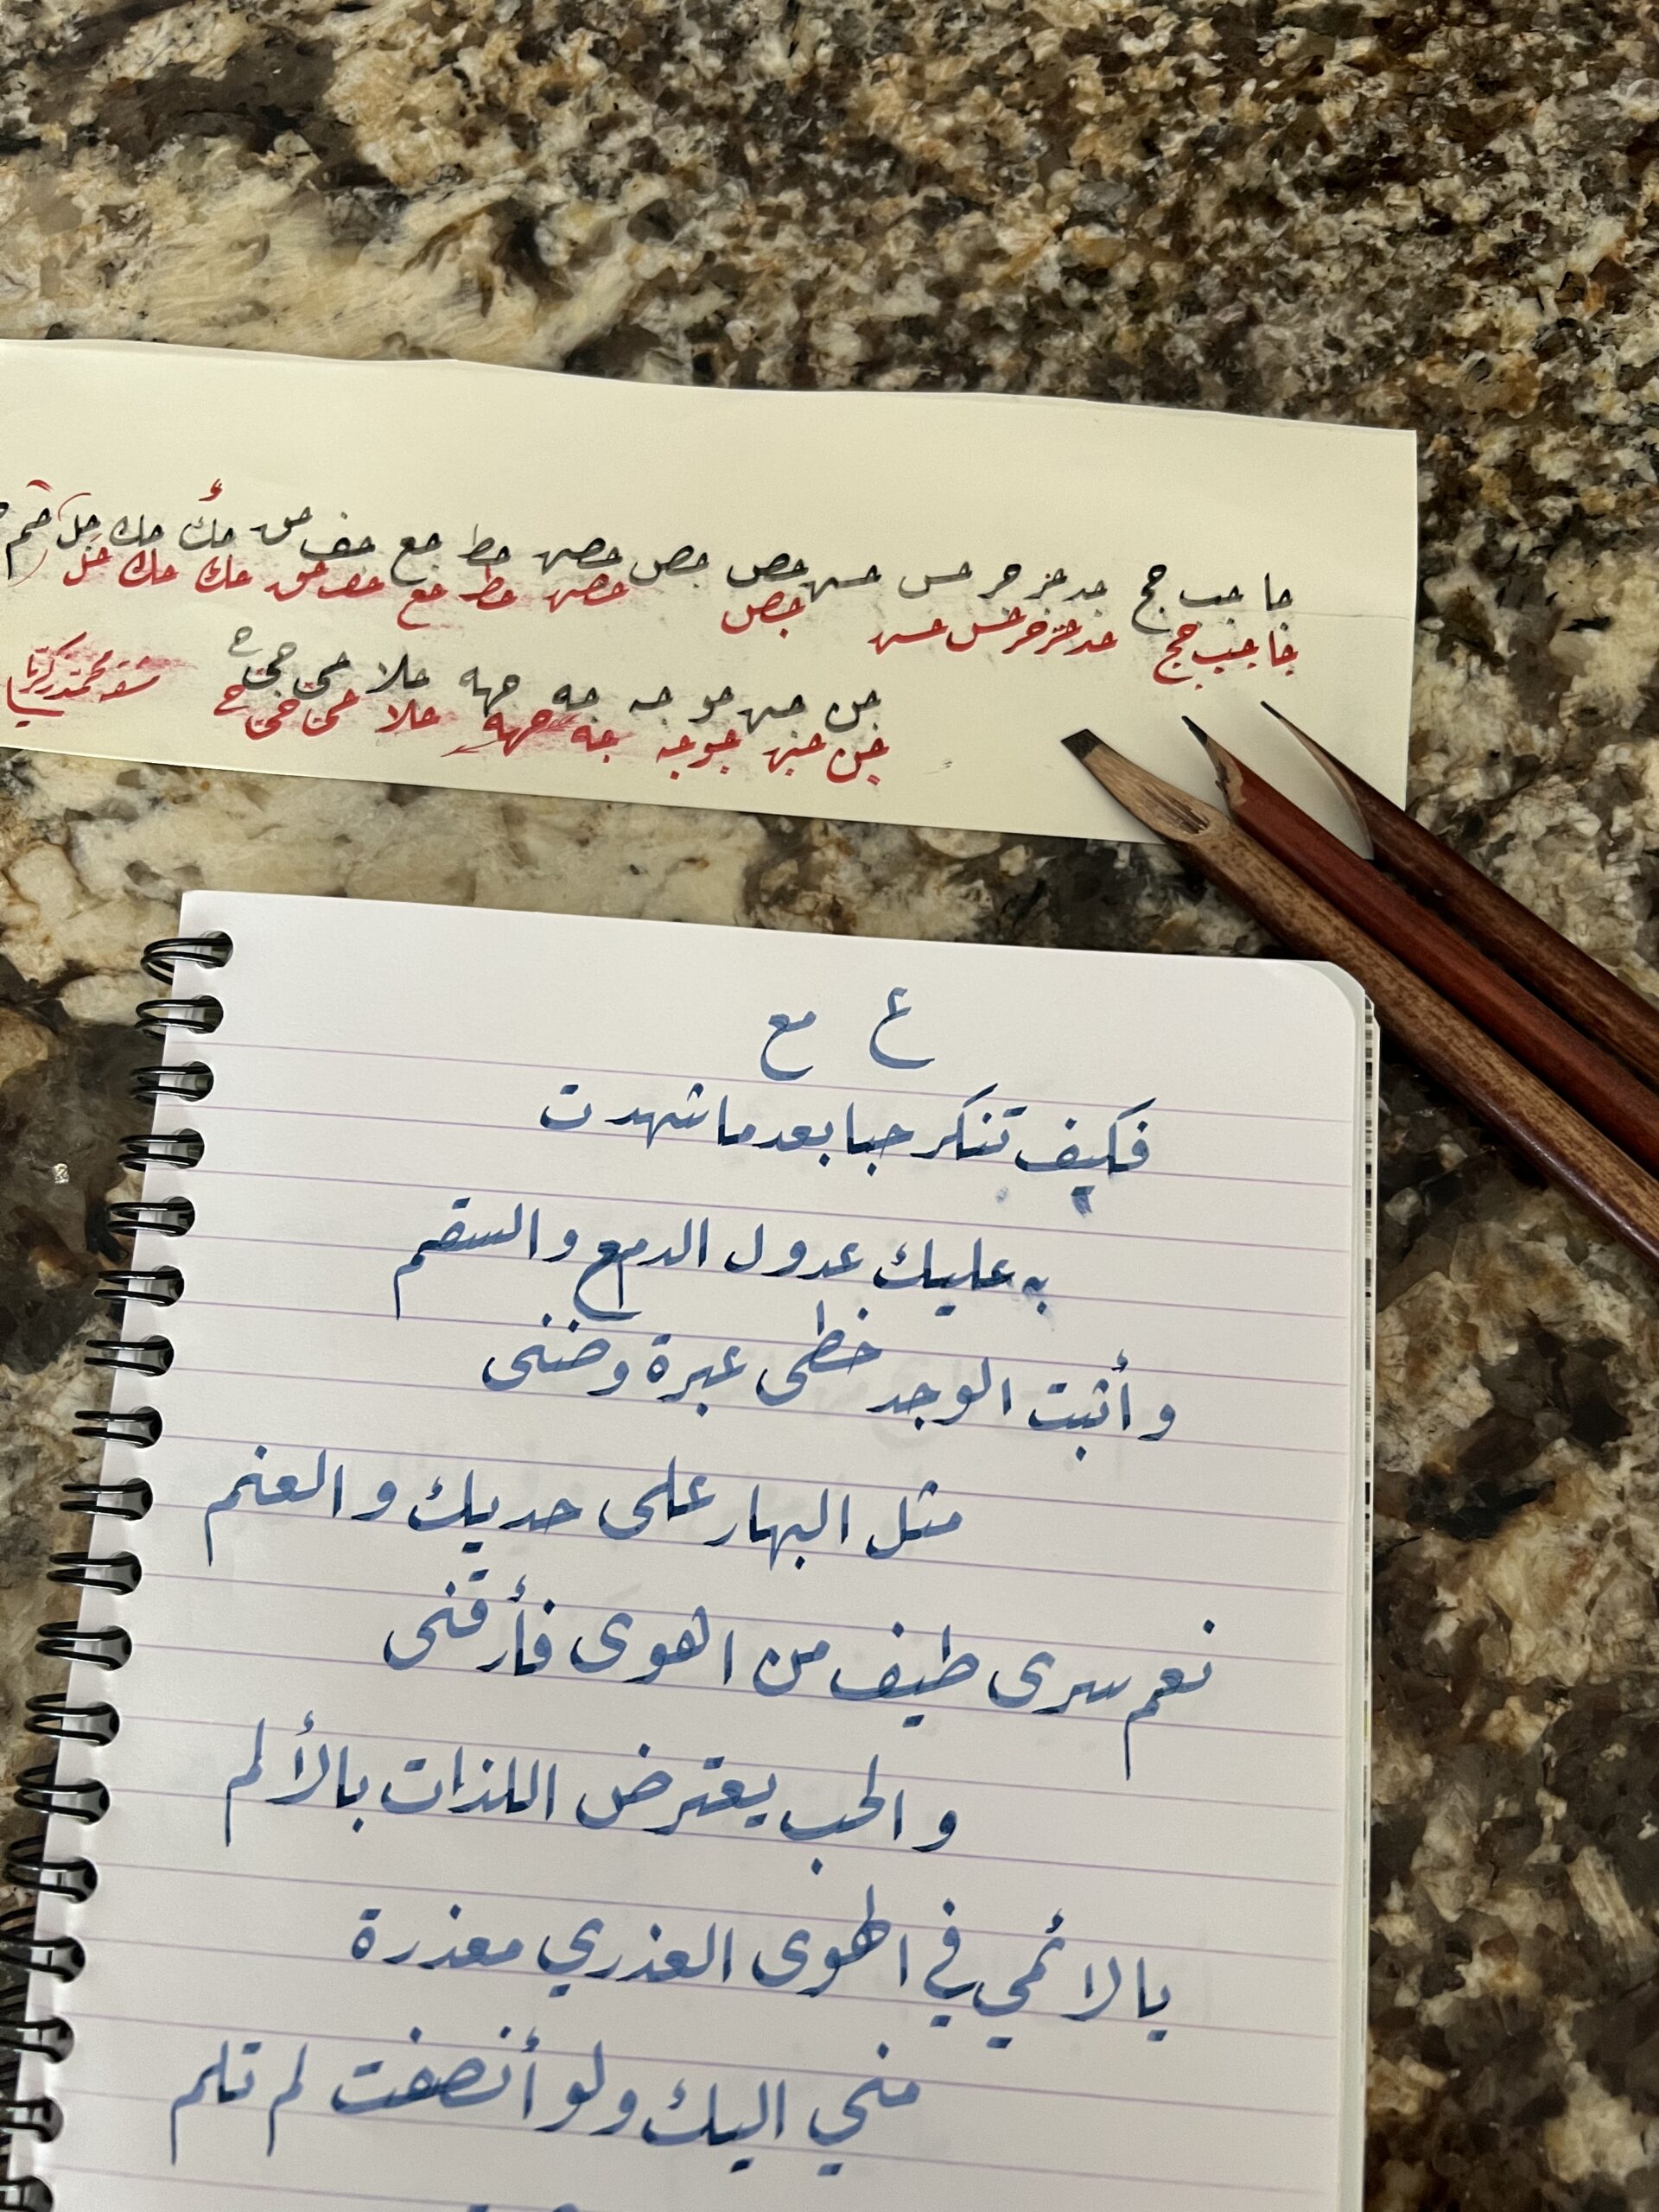 حا حب حج حد حر حر حس حس حص حص حص حط حع حف حق حك حك حل حم
حا حب حج حد حر حر حس حس حص حص حط حع حف حق حك حك حل
حن حن حو حه حه حهه حلا حى حى
حن حن حو حه حه حهه حلا حى حى ح
ع مع
فكيف تنكر حبا بعد ما شهدت
به عليك عدول الدمع والسقم
وأثبت الوجد خطى عبرة وضنى
مثل البهار على خديك والعنم
نعم سرى طيف من اهوى فأرقنى
والحب يعترض اللذات بالألم
يا لائمي في الهوى العذري معذرة
مني اليك ولو أنصفت لم تلم